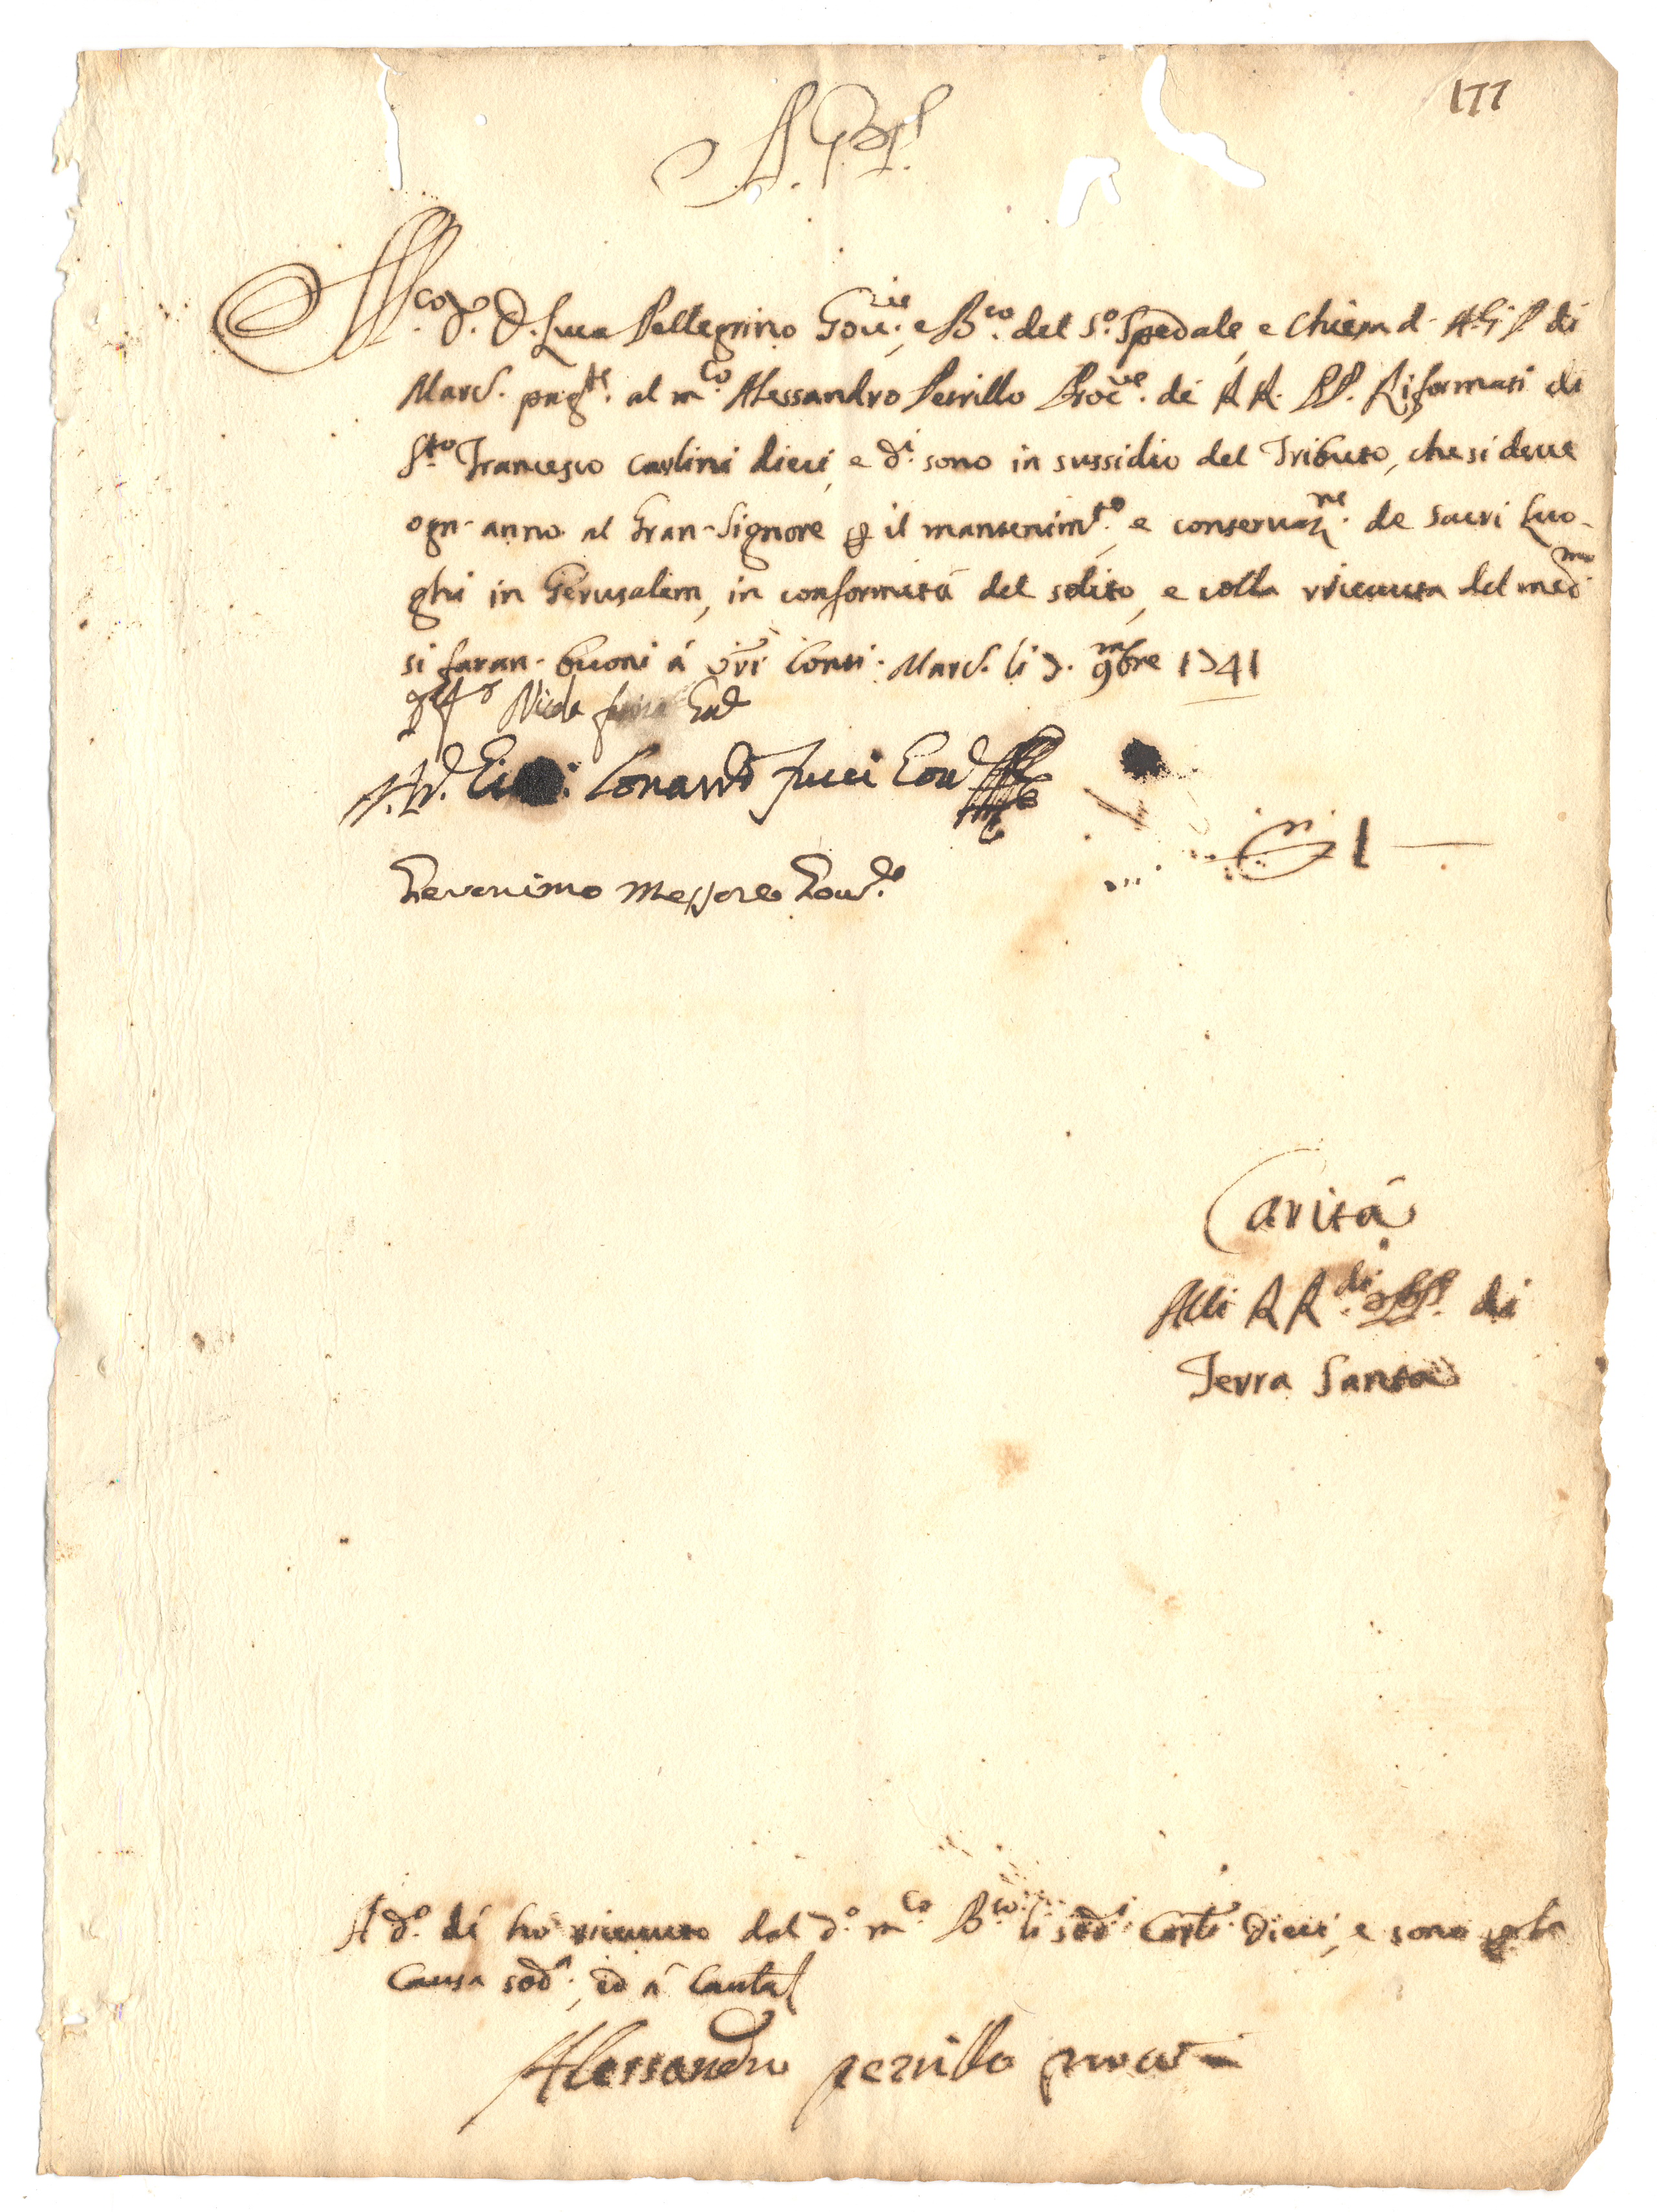 177
A. G. P.
M.co S.r D. Luca Pellegrino Gov.re e B.co del S.o Spedale, e Chiesa d. A. G. P. di
Marc. pag.te al m.co Alessandro Perrillo Proc.re de RR. PP. Riformati di
S.to Francesco carlini dieci, e d.i sono in sussidio del Tributo, che si deve
ogn- anno al Gran-Signore p il mantenim.to, e conservaz.ne de Sacri Luo-
ghi in Gerusalem, in conformità del solito, e colla ricevuta del med.mo
si faran- buoni à v̄ri Conti. Marc. li 7. 9mbre 1741
Nicola Gov.
Conardo Fucci Gov.
Geronimo Messore Gov.re
1 —
Carità
Alli RR.di PP. di
Terra Santa
A d.o dì hò ricevuto dal d.o m.co B.co li sod.i Carl.i dieci, e sono p la
Causa sod.a, ed à Cautal
Alessandro perrillo procu.re